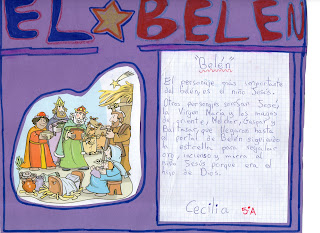 EL BELEN
"Belén"
El personaje más importante
del belén, es el niño Jesús.
Otros personajes son San José,
la Virgen María y los magos
de oriente, Melchor, Gaspar y
Baltasar, que llegaron hasta
el portal de Belén siguiendo
la estrella para regalar
oro, incienso y mirra al
niño Jesús porque era el
hijo de Dios.
Cecilia 5ºA